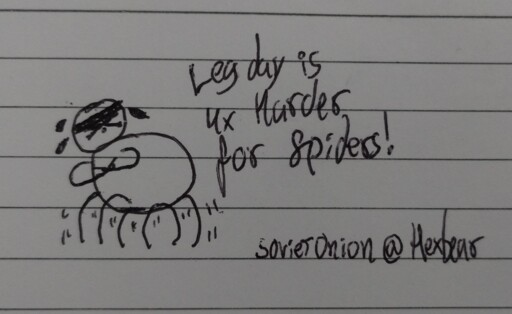 Leg day is
4x Harder
for spiders!
sovietonion @ Hexbear